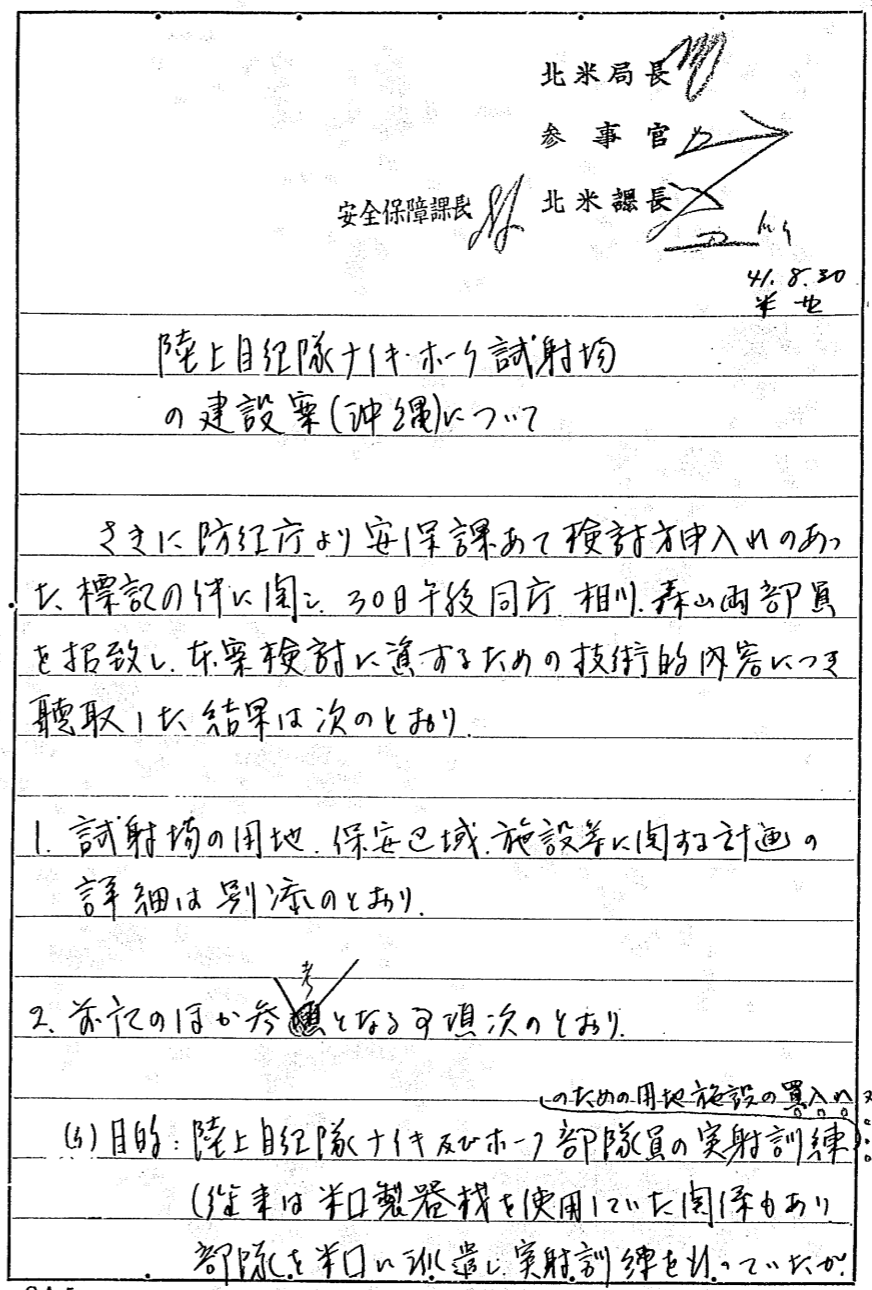 北米局長
参事官
北米課長
安全保障課長
41.8.30
米北
陸上自衛隊ナイキ・ホーク試射場
の建設案(沖縄)について
さきに防衛庁より安保課あて検討方申入れのあっ
た標記の件に関し、30日午後同庁 相川、森山両部員
を招致し、本案検討に資するための技術的内容につき
聴取した結果は次のとおり。
1. 試射場の用地、保安区域、施設等に関する計画の
詳細は別添のとおり。
2. 前記のほか参考となる事項次のとおり。
のための用地施設の買入れ
(イ)目的:陸上自衛隊ナイキ及びホーク部隊員の実射訓練
(従来は米国製器材を使用していた関係もあり
部隊を米国に派遣し実射訓練を行っていたが、